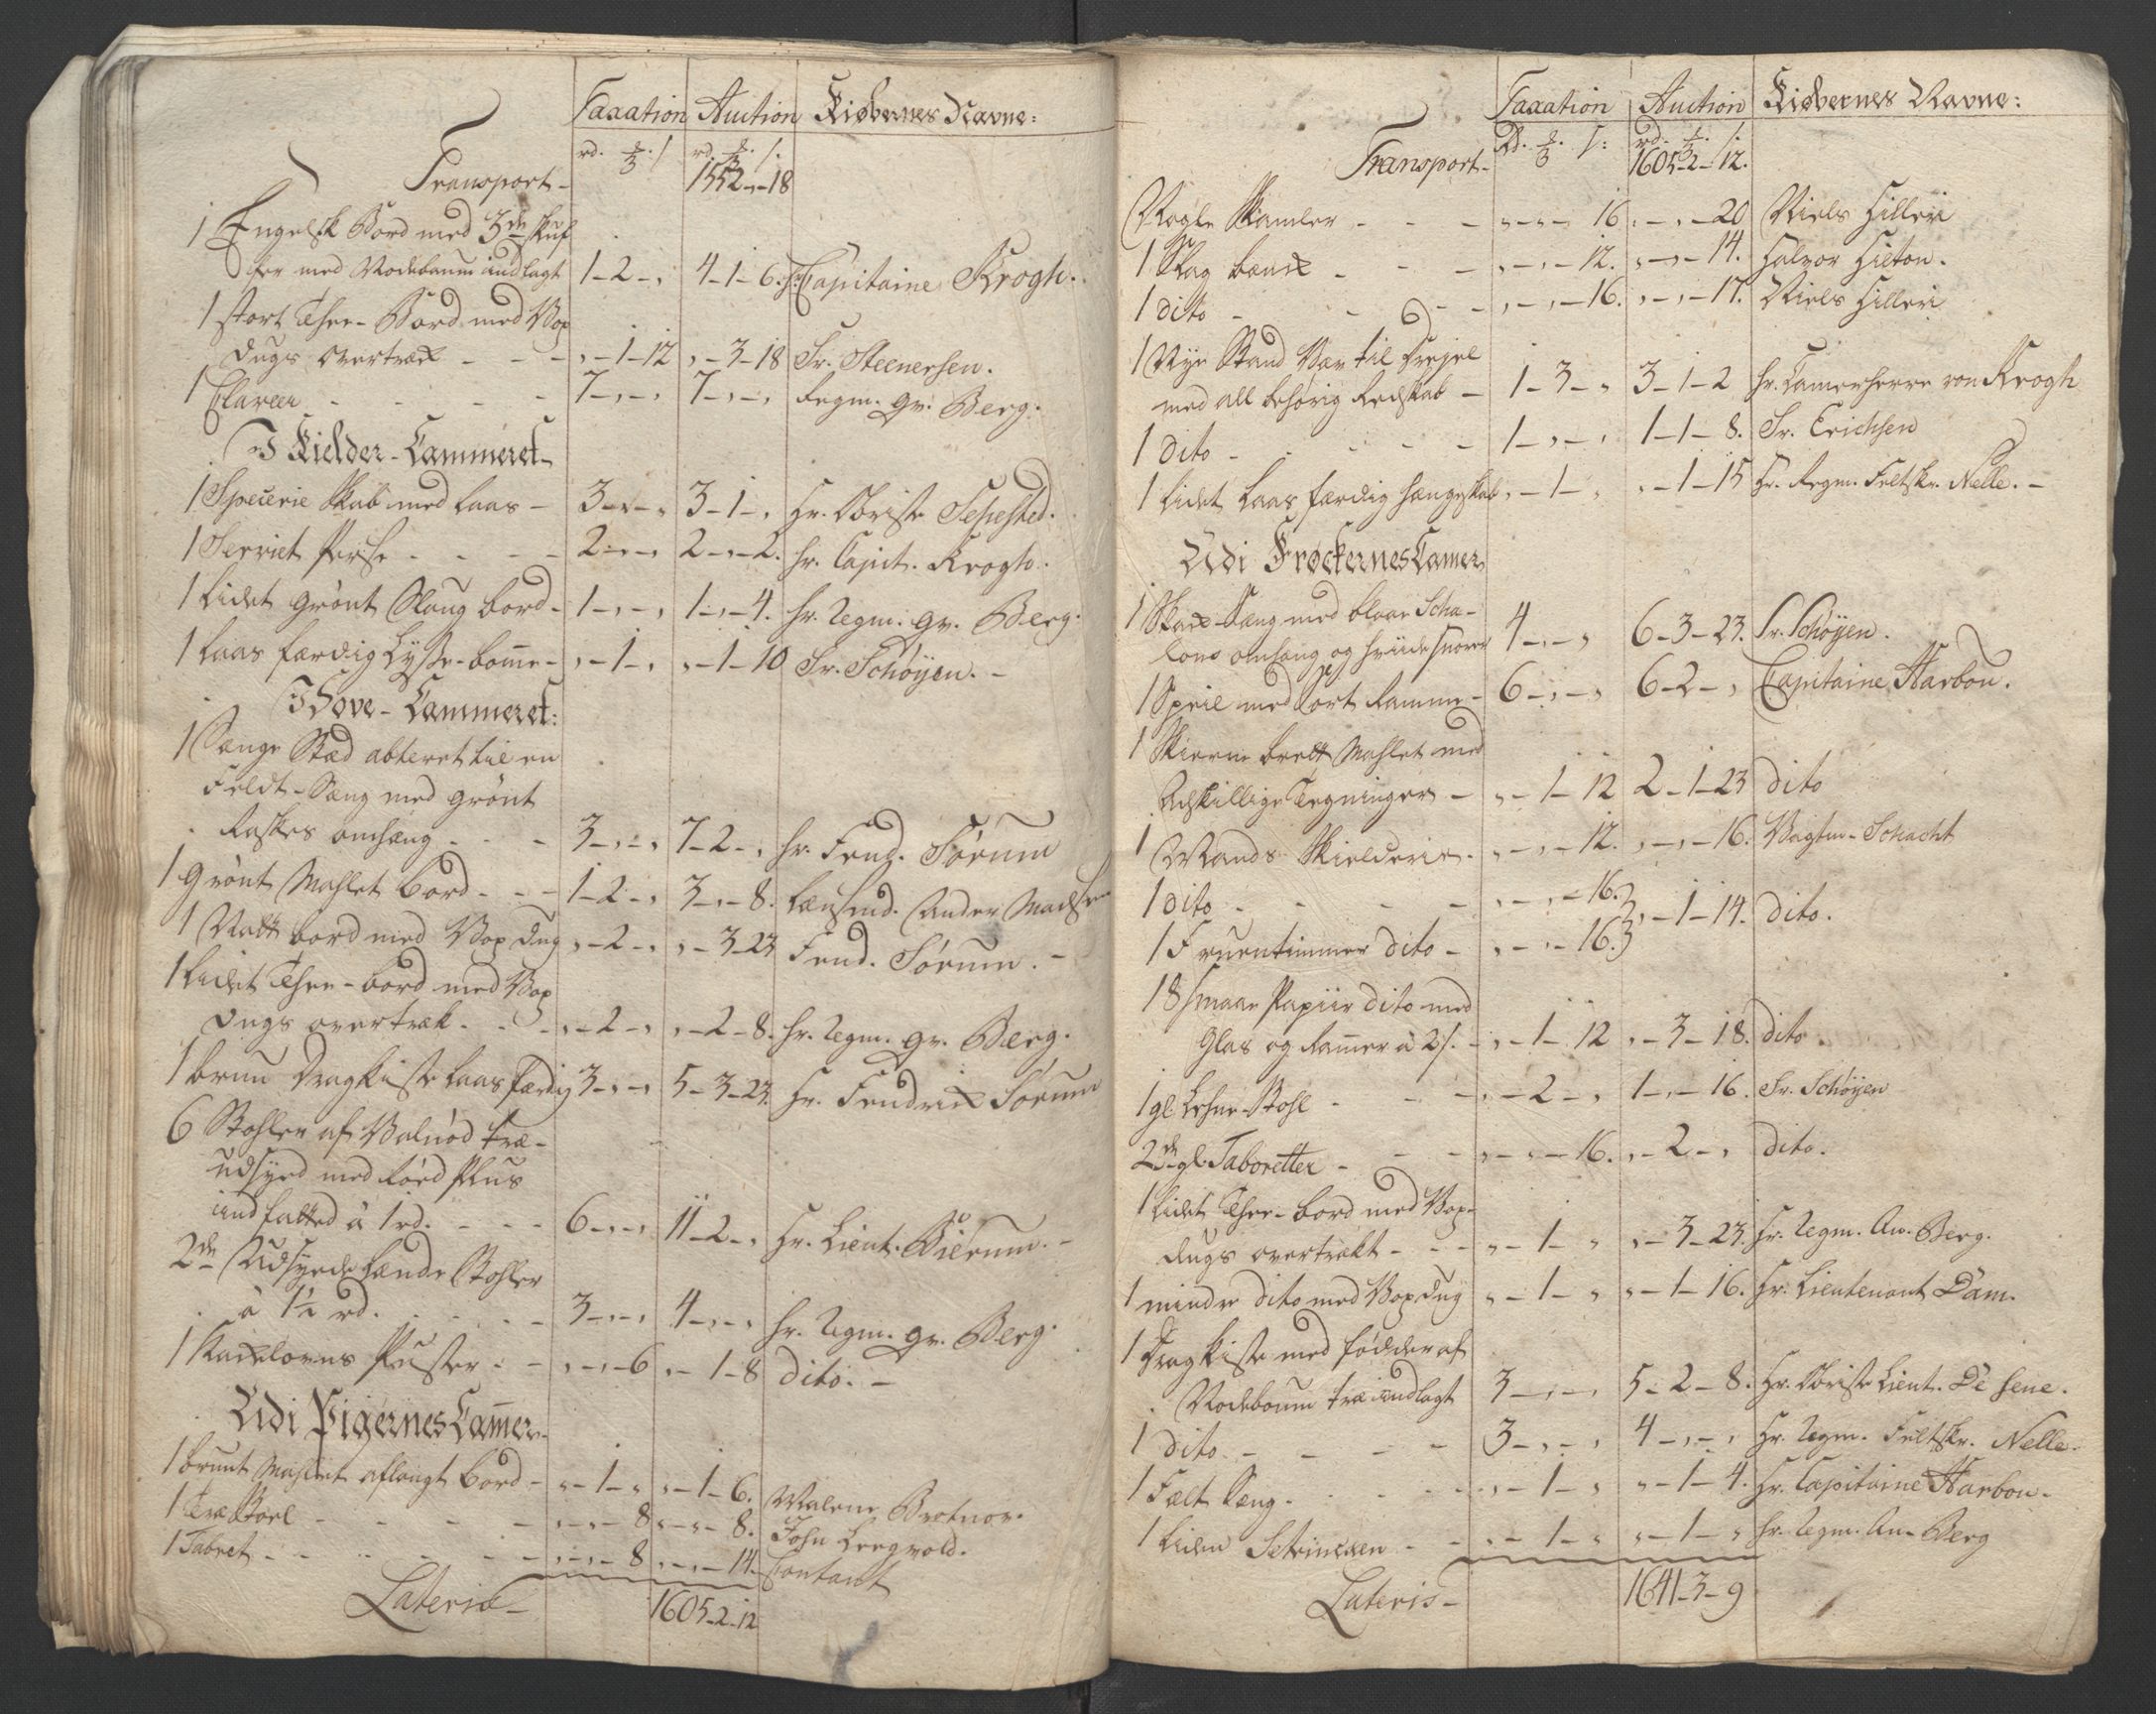 Taxation Auction Kiøbernes Navne:
rd. ß rd. ß
Transport- 1552-"-18
1 Engelsk Bord med 3de skuf
fer med Nodebaum indlagt 1-2-" 4-1-6. Hr. Capitaine Krogh.
1 stort Thee-Bord med Vox
dugs overtræk - - - "-1-12 "-3-18 Sr. Steenersen.
1 Claveer - - - - 7-"-" 7-"-" Regm. qv. Berg.
I Kielder-Cammeret-
1 Specerie Skab med laas - 3-"-" 3-1-" Hr. Obriste Sehested.
1 Serviet Perse - - - - 2-"-" 2-"-2. Hr. Capit. Krogh.
1 lidet grønt Slaug bord - 1-"-" 1-"-4. Hr. Regm. qv. Berg.
1 laas færdig Lysse-bomme - "-1-" "-1-10 Sr. Schøyen. -
I Sove-Cammeret:
1 Senge Stæd abteret til en
Feldt-Sæng med grønt
Raskes omhæng - - - 3-"-" 7-2-" Hr. Fend. Sørum
1 grønt Mahlet bord - - - 1-2-" 3-"-8. Lænsmd. Ander Madsen
1 Natt bord med Vox dug "-2-" "-3-23 Fend. Sørum. -
1 lidet Thee-bord med Vox
dugs overtræk - - - "-2-" "-2-8. Hr. Regm. qv. Berg.
1 brun Dragkiste laas færdig 3-"-" 5-3-23. Hr. Fendrik Sørum
6 Stohler af Valnød træ-
udsyed med rød Plus
indfatted à 1 rd. - - - 6-"-" 11-2-" Hr. Lieut. Bierum. -
2de Udsyede Lænde Stohler
à 1½ rd. - - - - 3-"-" 4-"-" Hr. Regm. qv. Berg.
1 Kackelovns Puster - - "-"-6 "-1-8 dito. -
Udi Pigernes Cammer-
1 brunt Mahlet aflangt bord - "-1-" "-1-6. Malene Brotnov.
1 Træ Stoel - - - - "-"-8 "-"-8. John Leegvold.
1 Tabret - - - - - "-"-8 "-"-14. Contant
Lateris- 1605-2-12
Taxation Auction Kiøbernes Navne:
Rd. ß: rd. ß
Transport- 1605-2-12.
Nogle Skamler - - - "-"-16 "-"-20 Niels Hilleri
1 Slag benk - - - "-"-12. "-"-14. Halvor Hilton.
1 dito - - - - "-"-16. "-"-17. Niels Hilleri
1 Nye Stand Væv til Drejel
med all behørig Redskab - 1-3-" 3-1-2 Hr. Camerherre von Krogh
1 dito - - - - 1-"-" 1-1-8. Sr. Erichsen
1 lidet laas færdig hængeskab "-1-" "-1-15 Hr. Regm. Feltskr. Nelle. -
Udi Frøckernes Camer
1 Skax-Sæng med blaae Scha-
lons omhang og hviide snorer 4-"-" 6-3-23. Sr. Schøyen.
1 Speil med sort Ramme - 6-"-" 6-2-" Capitaine Harbou.
1 Skierm brett Mahlet med
Adskillige Tegninger - "-1-12 2-1-23 dito
1 Mands Skielderie - "-"-12. "-"-16. Vagtm. Schacht
1 dito - - - - "-"-16.}
1 Fruentimmer dito - "-"-16.} "-1-14. dito.
18 smaae Papiir dito med
Glas og Rammer à 2 ß. - "-1-12 "-3-18. dito
1 gl. Lehne Stohl - - - "-2-" 1-"-16. Sr. Schøyen
2de gl. Taboretter - - - "-"-16. "-2-" dito.
1 lidet Thee-bord med Vox-
dugs overtrækt - - - "-1-" "-3-23. Hr. Regm. Qv. Berg.
1 mindre dito med Voxdug "-1-" "-1-16. Hr. Lieutenant Dam.
1 Drag Kiste med fødder af
Nodeboum træ indlagt 3-"-" 5-2-8. Hr. Obriste Lieut. De Seue.
1 dito. - - - - 3-"-" 4-"-" Hr. Regm. Feltskr. Nelle.
1 Fælt Sæng - - - - "-1-" "-1-4. Hr. Capitaine Harbou.
1 liden - - "-1-" "-1-" Hr. Regm. Qv. Berg
Lateris- 1641-3-9